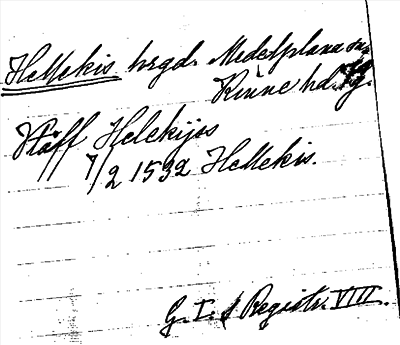 Hellekis hrgd. Medelplana sn,
Kinne hd. Vg.
Staff Helekijss
7/2 1532 Hellekis.
G. I. s Registr. VIII.